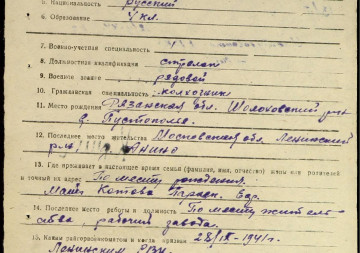 5. Национальность Русский
6. Образование 4 кл.
7. Военно-учетная специальность
8. Должностная квалификация стрелок
9. Военное звание рядовой
10. Гражданская специальность колхозник
11. Место рождения Рязанская обл. Шолоховский
д. Пустополье.
12. Последнее место жительства Московская обл. Ленинский
р-н Анино
13. Где проживает в настоящее время семья (фамилия, имя, отчество) жены или родителей
и точный их адрес По месту рождения.
Мать Котова Праск. Евр.
14. Последнее место работы и должность По месту житель-
ства, рабочий завода.
15. Каким райгорвоенкоматом и когда призван 28/IX-1941 г.
Ленинским РВК